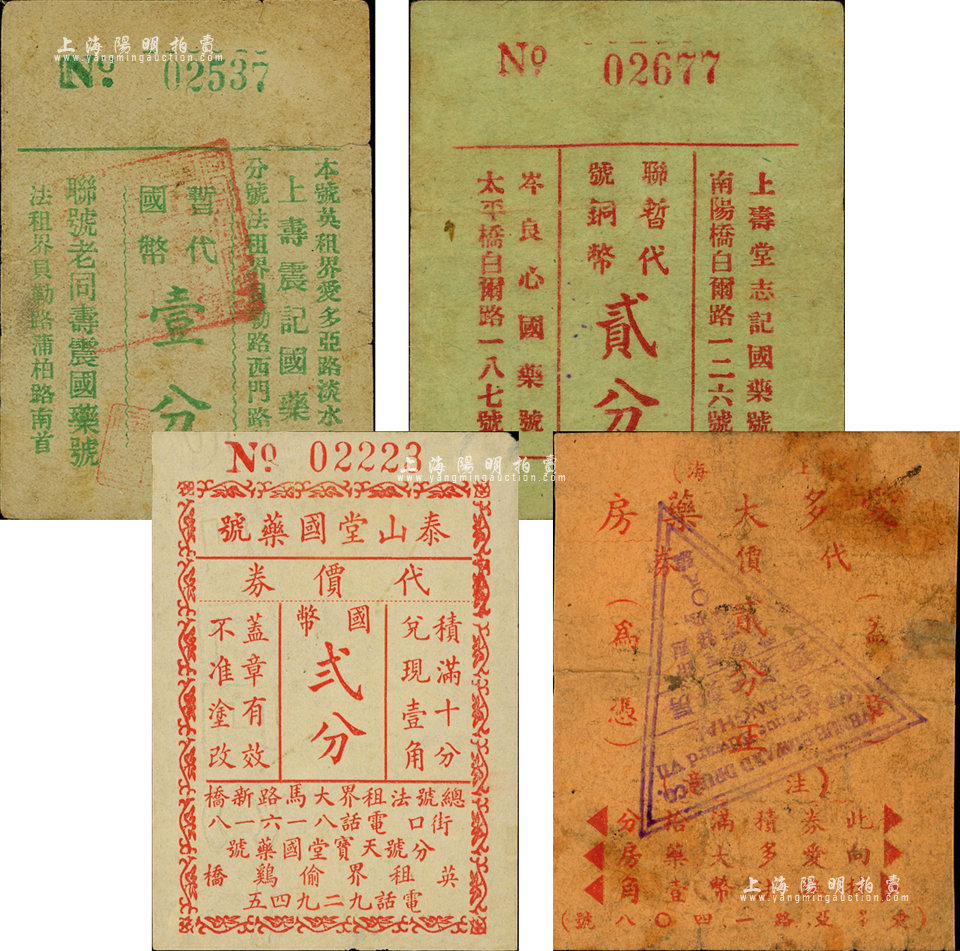 上海陽明拍賣
www.yangmingauction.com
No. 02537
本號英租界愛多亞路淡水
上壽震記國藥
分號法租界貝勒路西門路
暫代
國幣
壹分
聯號老同壽震國藥號
法租界貝勒路蒲柏路南首
No. 02677
上壽堂志記國藥號
南陽橋白爾路一二六號
聯暫代
號銅幣
貳分
岑良心國藥號
太平橋白爾路一八七號
No. 02223
上海陽明拍賣
www.yangmingauction.com
泰山堂國藥號
代價券
積滿十分
兌現壹角
國幣
弍分
蓋章有效
不准塗改
總號法租界大馬路新橋
街口電話八一六一八
分號天寶堂國藥號
英租界偷鷄橋
電話九二九四五
上海
多大藥房
代價券
貳分正
(蓋章
(為憑)
注
此券積滿拾分
向愛多大藥房
壹角
愛多亞路一四〇八號)
AVENUE EDWARD DRUG CO.
Avenue Edward VII
SHANGHAI
上海陽明拍賣
www.yangmingauction.com